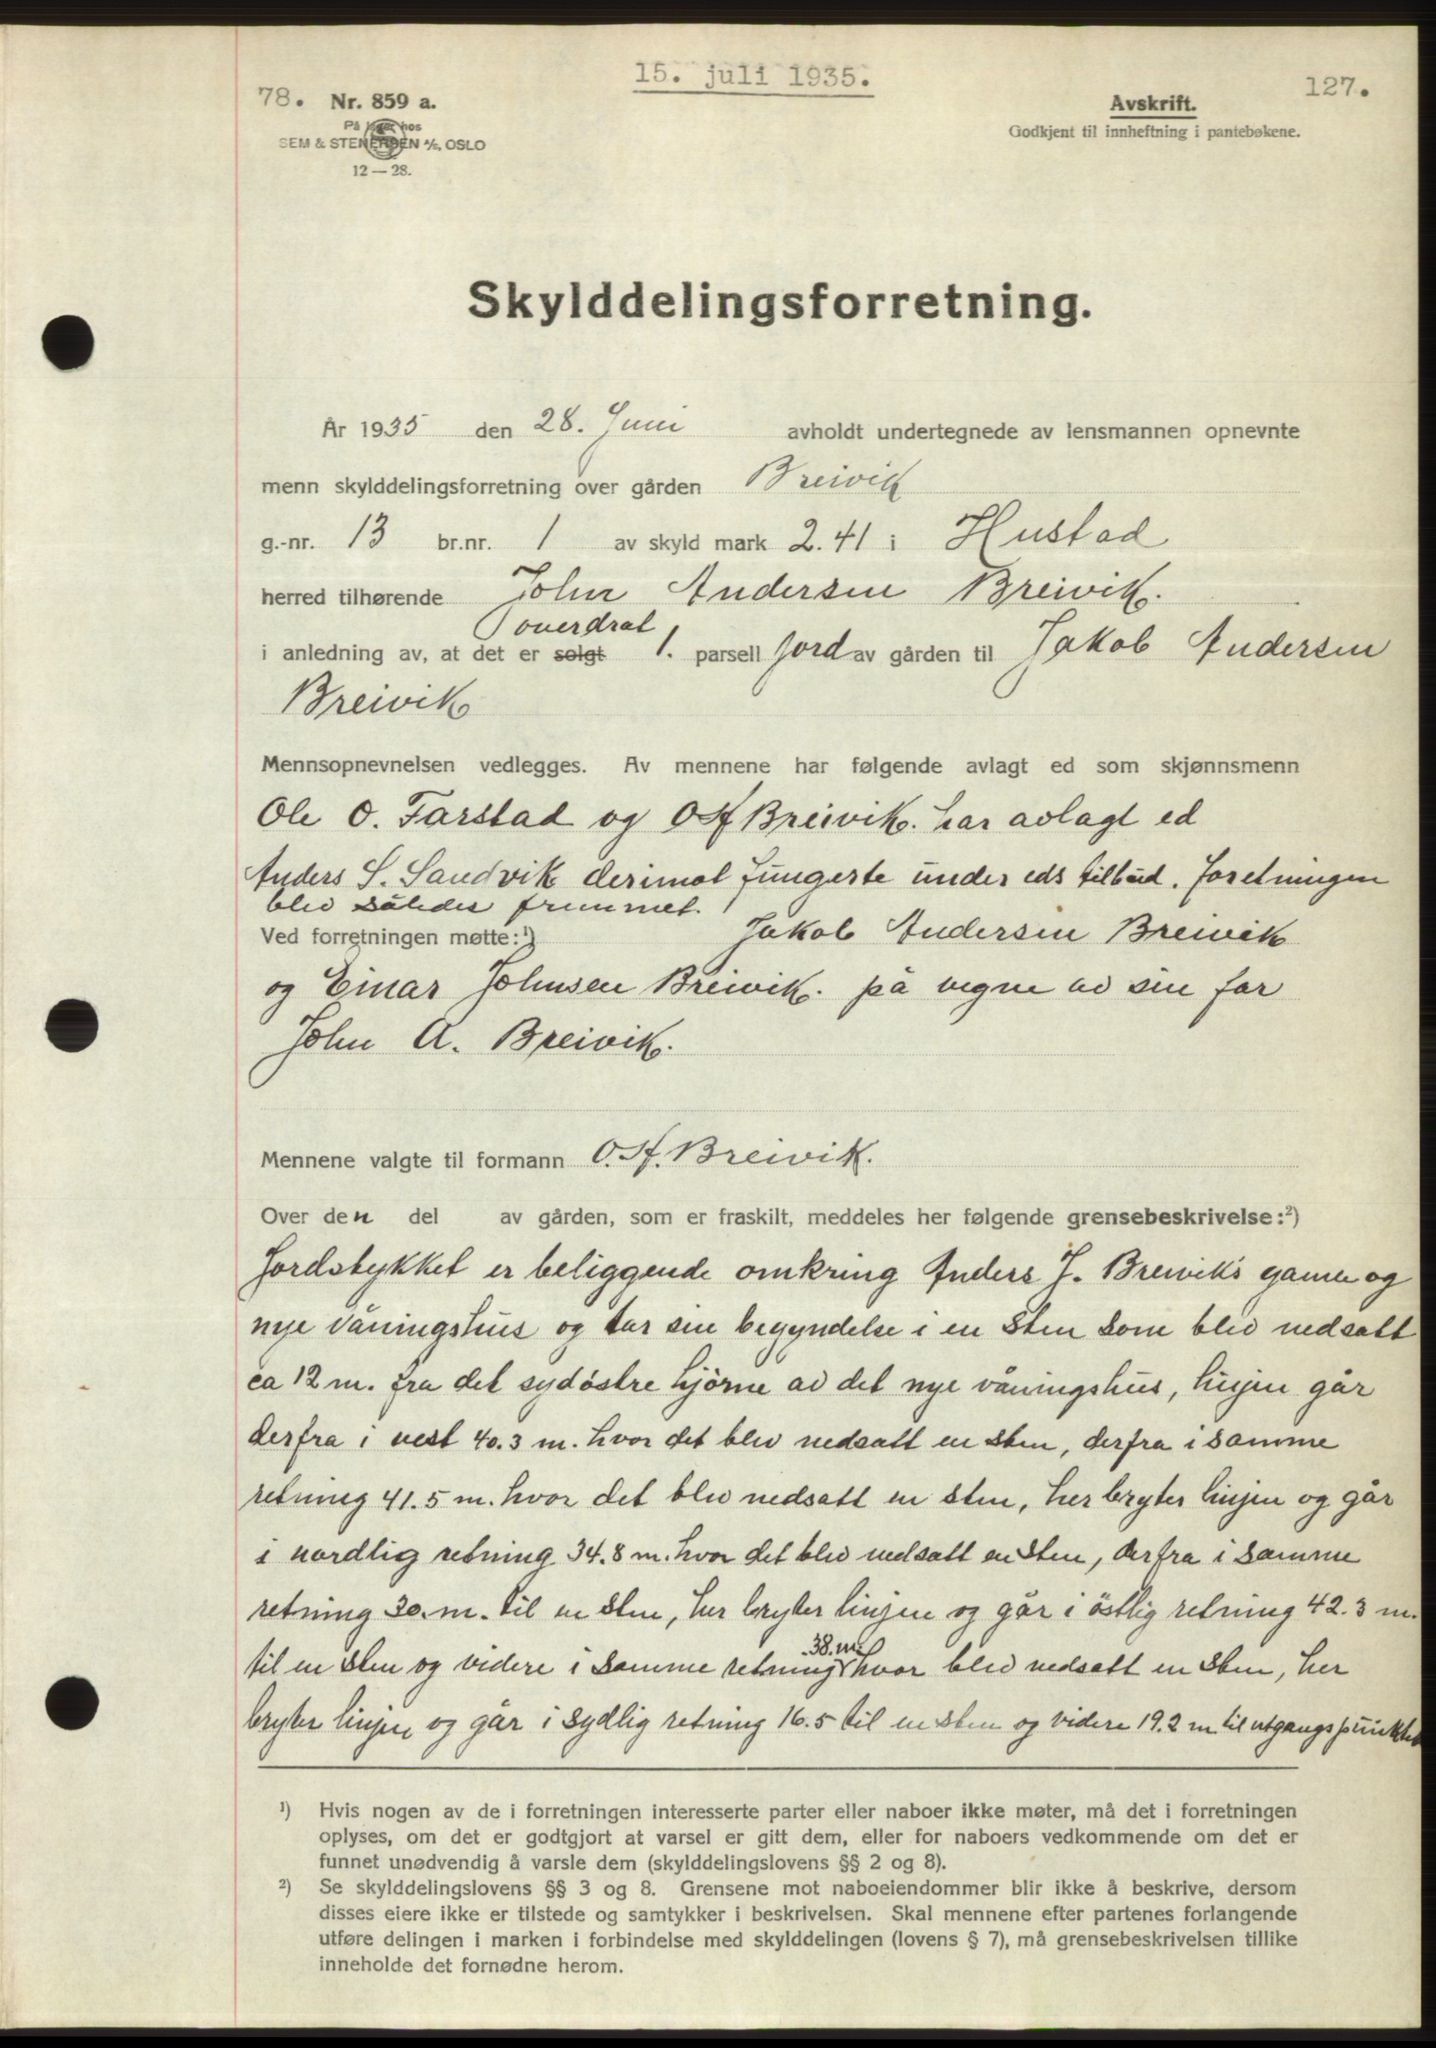 15. juli 1935.
127.
78. Nr. 859 a.
På lager hos
SEM & STENERSEN A/S, OSLO
12 — 28.
Avskrift.
Godkjent til innheftning i pantebøkene.
Skylddelingsforretning.
År 1935 den 28. Juni avholdt undertegnede av lensmannen opnevnte
menn skylddelingsforretning over gården Breivik
g.-nr. 13 br.nr. 1 av skyld mark 2.41 i Hustad
herred tilhørende John Andersen Breivik.
overdrat
i anledning av, at det er solgt 1. parsell jord av gården til Jakob Andersen
Breivik
Mennsopnevnelsen vedlegges. Av mennene har følgende avlagt ed som skjønnsmenn
Ole O. Farstad og O H Breivik. har avlagt ed
Anders S. Sandvik derimot fungerte under eds tilbud. foretningen
blev således fremmet.
Ved forretningen møtte:¹) Jakob Andersen Breivik
og Einar Johnsen Breivik. på vegne av sin far
John A. Breivik.
Mennene valgte til formann O. H. Breivik.
Over den del av gården, som er fraskilt, meddeles her følgende grensebeskrivelse:²)
Jordstykket er beliggende omkring Anders J. Breivik's gamle og
nye våningshus og tar sin begyndelse i en sten som blev nedsatt
ca 12 m. fra det sydöstre hjörne av det nye våningshus, linjen går
derfra i vest 40.3 m. hvor det blev nedsatt en sten, derfra i samme
retning 41.5 m. hvor det blev nedsatt en sten, her bryter linjen og går
i nordlig retning 34.8 m. hvor det blev nedsatt en sten, derfra i samme
retning 30. m. til en sten, her bryter linjen og går i östlig retning 42.3 m.
38. m.
til en sten og videre i samme retning hvor blev nedsatt en sten, her
bryter linjen og går i sydlig retning 16.5 til en sten og videre 19.2 m til utgangspunktet
¹) Hvis nogen av de i forretningen interesserte parter eller naboer ikke møter, må det i forretningen
oplyses, om det er godtgjort at varsel er gitt dem, eller for naboers vedkommende om det er
funnet unødvendig å varsle dem (skylddelingslovens §§ 2 og 8).
²) Se skylddelingslovens §§ 3 og 8. Grensene mot naboeiendommer blir ikke å beskrive, dersom
disses eiere ikke er tilstede og samtykker i beskrivelsen. Skal mennene efter partenes forlangende
utføre delingen i marken i forbindelse med skylddelingen (lovens § 7), må grensebeskrivelsen tillike
inneholde det fornødne herom.